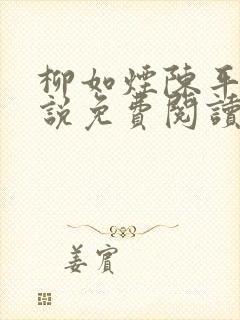 柳如煙陳平
說免費閱讀
姜賓